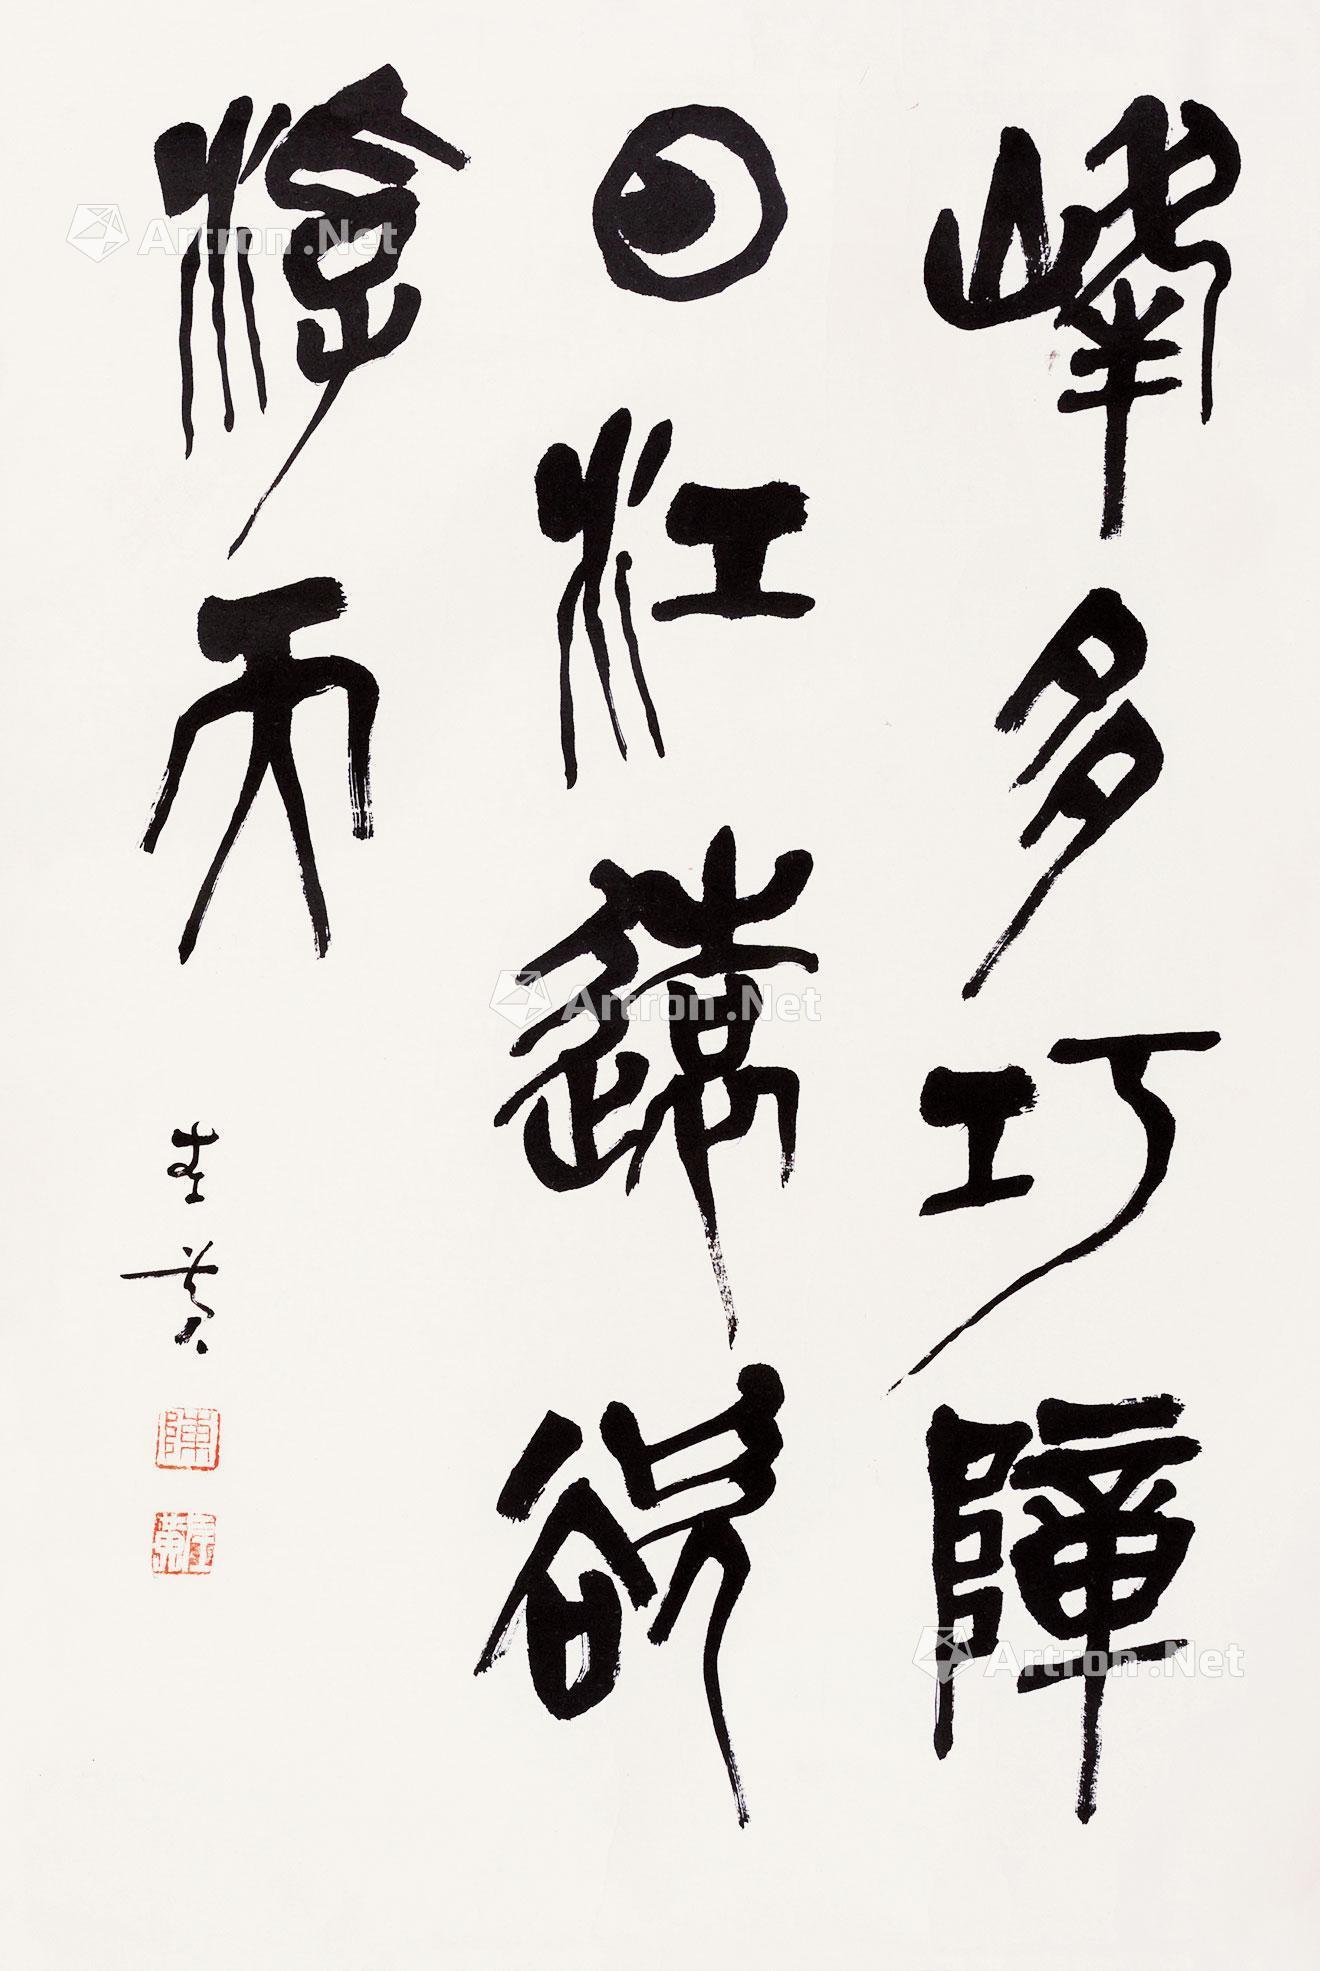 峰多巧障
日江遠欲
浮天
左黄
陳
左黄
Artron.Net
Artron.Net
Artron.Net